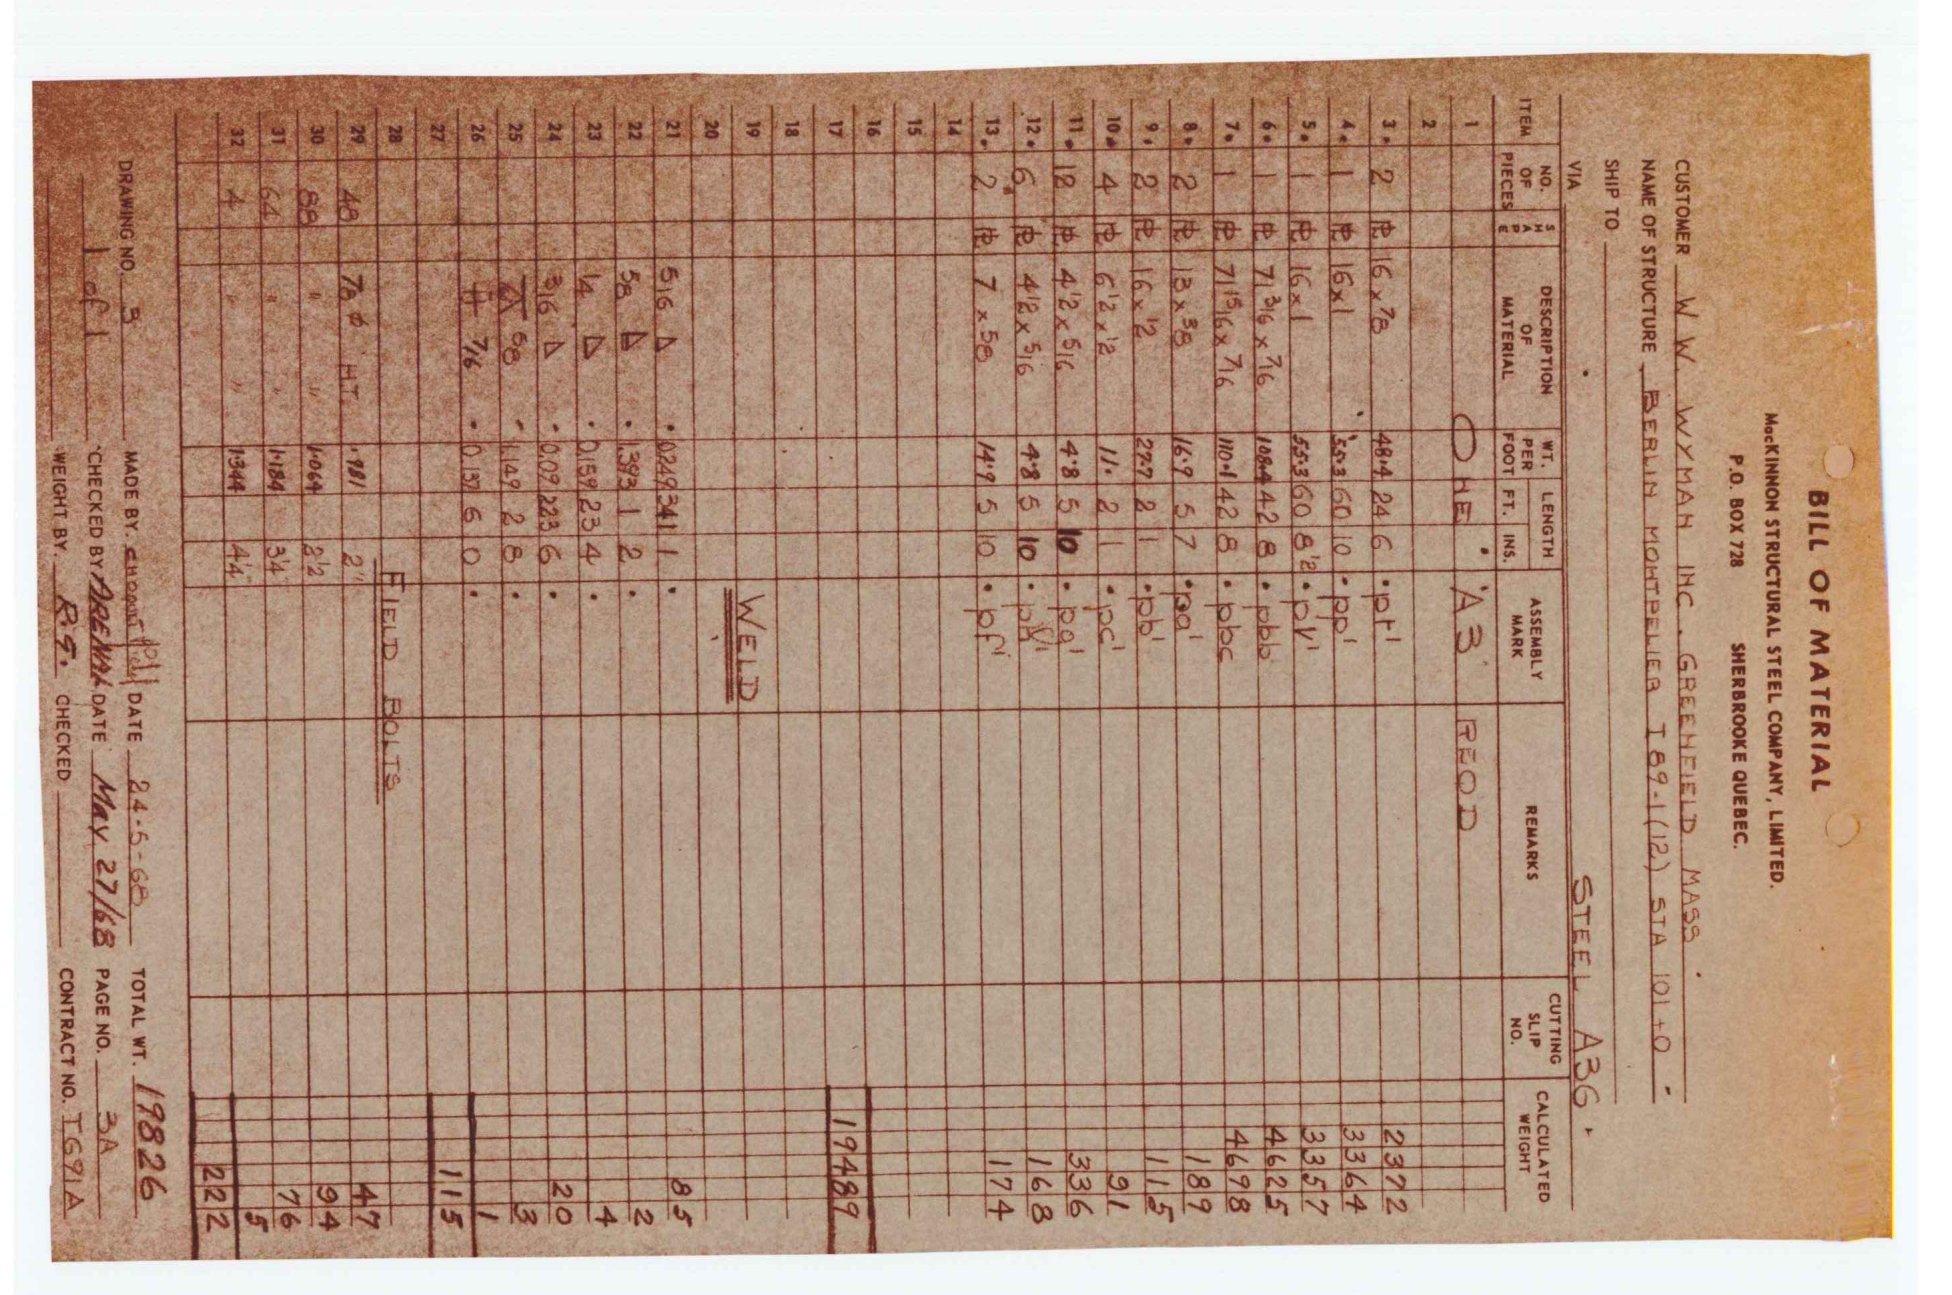 BILL OF MATERIAL
MacKINNON STRUCTURAL STEEL COMPANY, LIMITED.
P.O. BOX 728 SHERBROOKE QUEBEC.
CUSTOMER W.W. WYMAN INC. GREENFIELD MASS.
NAME OF STRUCTURE BERLIN MONTPELIER I 89-1(12) STA 101+0
SHIP TO
VIA STEEL A36.
ITEM NO. OF PIECES SHAPE DESCRIPTION OF MATERIAL WT. PER FOOT LENGTH FT. INS. ASSEMBLY MARK REMARKS CUTTING SLIP NO. CALCULATED WEIGHT
1 ONE 'A3' REQD
2
3. 2 PL 16 x 7/8 48.4 24 6 pr' 2372
4. 1 PL 16 x 1 55.3 60 10 pp' 3364
5. 1 PL 16 x 1 55.3 60 8 1/2 pv' 3357
6. 1 PL 71 3/16 x 7/16 108.4 42 8 pbb 4625
7. 1 PL 71 15/16 x 7/16 110.1 42 8 pbc 4698
8. 2 PL 13 x 3/8 16.9 5 7 pa' 189
9. 2 PL 16 x 1/2 27.7 2 1 pb' 115
10. 4 PL 6 1/2 x 1/2 11. 2 1 pc' 91
11. 12 PL 4 1/2 x 5/16 4.8 5 10 pg' 336
12. 6 PL 4 1/2 x 5/16 4.8 5 10 168
13. 2 PL 7 x 5/8 14.9 5 10 pf' 174
14
15
16
17 19489
18
19 WELD
20
21 5/16 △ 0.249 341 1 85
22 5/8 △ 1.393 1 2 2
23 1/4 △ 0.159 23 4 4
24 3/16 △ 0.09 223 6 20
25 5/8 1.149 2 8 3
26 7/16 0.137 6 0 1
27 115
28 FIELD BOLTS
29 48 7/8 φ HT .981 2" 47
30 88 " " 1.064 2 1/2 94
31 64 " " 1.184 3 1/4" 76
32 4 " " 1.344 4 1/4" 5
222
DRAWING NO. 3 MADE BY. DATE 24-5-68 TOTAL WT. 19826
1 of 1 CHECKED BY DATE May 27/68 PAGE NO. 3A
WEIGHT BY. R.G. CHECKED CONTRACT NO. T691A